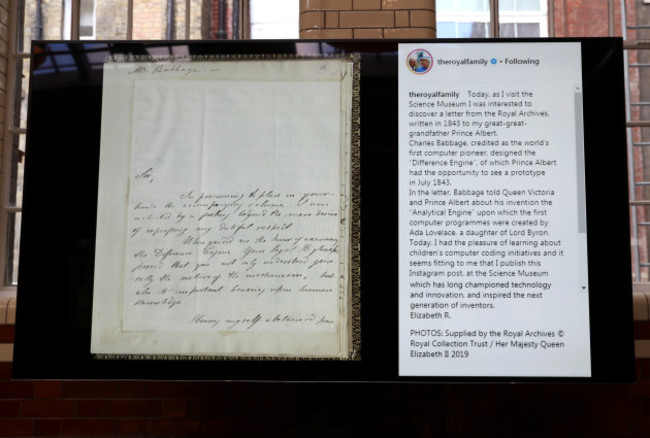 Mr. Babbage
Sir,
In presenting the plan in your
hands the accompanying volume I am
actuated by a feeling beyond the mere desire
of expressing my dutiful respect.
When you did me the honor of examining
the Difference Engine Your Royal Highness
proved that you not only understood
the of the mechanism, but
also its important bearing upon human
knowledge.
Having myself
theroyalfamily • Following
theroyalfamily Today, as I visit the
Science Museum I was interested to
discover a letter from the Royal Archives,
written in 1843 to my great-great-
grandfather Prince Albert.
Charles Babbage, credited as the world's
first computer pioneer, designed the
"Difference Engine", of which Prince Albert
had the opportunity to see a prototype
in July 1843.
In the letter, Babbage told Queen Victoria
and Prince Albert about his invention the
"Analytical Engine" upon which the first
computer programmes were created by
Ada Lovelace, a daughter of Lord Byron.
Today, I had the pleasure of learning about
children's computer coding initiatives and it
seems fitting to me that I publish this
Instagram post, at the Science Museum
which has long championed technology
and innovation, and inspired the next
generation of inventors.
Elizabeth R.
PHOTOS: Supplied by the Royal Archives ©
Royal Collection Trust / Her Majesty Queen
Elizabeth II 2019